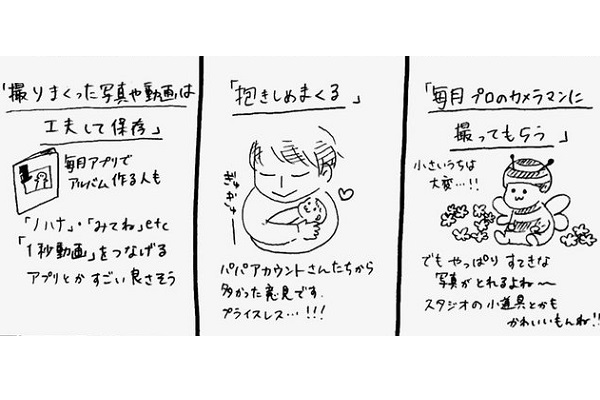 「撮りまくった写真や動画は
工夫して保存」
毎月アプリで
アルバム作る人も
「ノハナ」・「みてね」etc
「1秒動画」をつなげる
アプリとかすごい良さそう
「抱きしめまくる」
ぎゅうぎゅー
パパアカウントさんたちから
多かった意見です.
プライスレス…!!!
「毎月プロのカメラマンに
撮ってもらう」
小さいうちは
大変…!!
でもやっぱりすてきな
写真がとれるよね〜
スタジオの小道具とかも
かわいいもんね!!